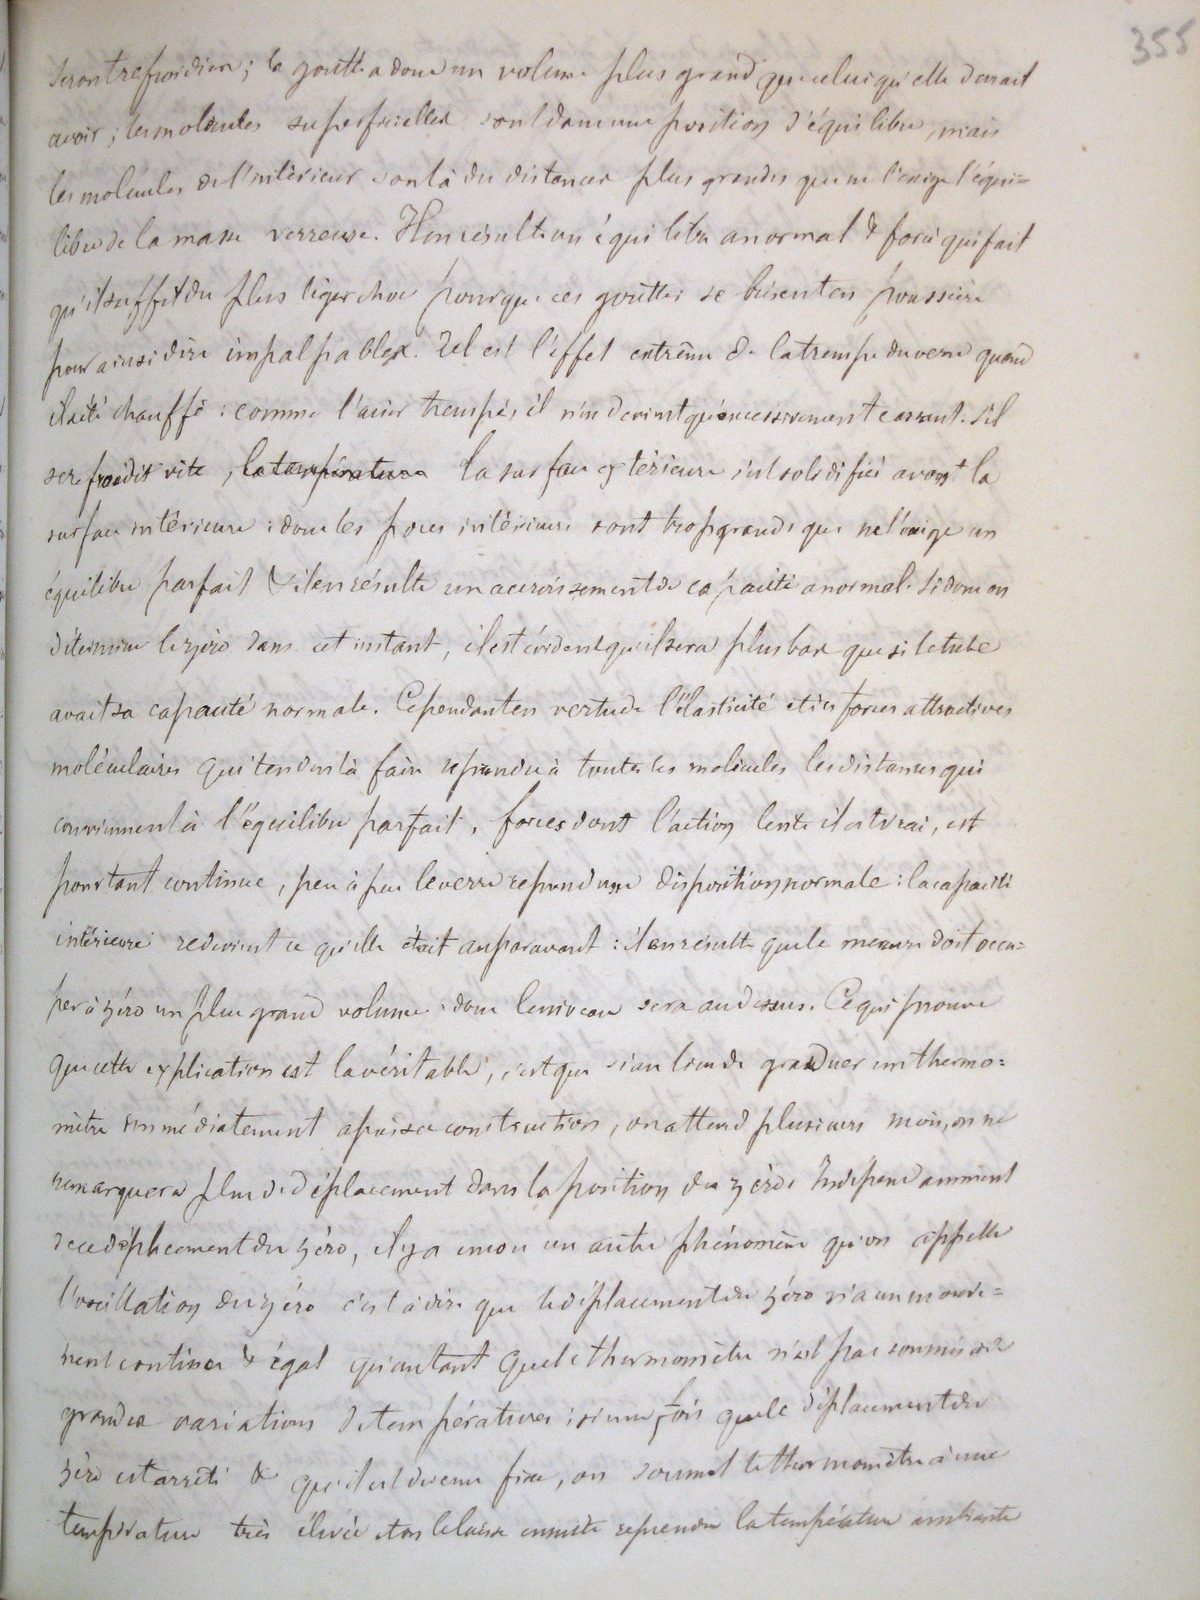 355
seront refroidies; la goutte a donc un volume plus grand que celui qu'elle devrait
avoir; les molécules superficielles sont dans une position d'équilibre, mais
les molécules de l'intérieur sont à des distances plus grandes que ne l'exige l'équi=
libre de la masse verreuse. Il en résulte un équilibre anormal & forcé qui fait
qu'il suffit du plus léger choc pour que ces gouttes se brisent en poussière
pour ainsi dire impalpables. Tel est l'effet extrême de la trempe du verre quand
il a été chauffé : comme l'acier trempé, il n'en devient qu'excessivement cassant. S'il
se refroidit vite, la température la surface extérieure s'est solidifiée avant la
surface intérieure : donc les pores intérieurs sont trop grands que ne l'exige un
équilibre parfait & il en résulte un accroissement de capacité anormal. Si donc on
détermine le zéro dans cet instant, il est évident qu'il sera plus bas que si le tube
avait sa capacité normale. Cependant en vertu de l'élasticité et des forces attractives
moléculaires qui tendent à faire reprendre à toutes les molécules les distances qui
conviennent à l'équilibre parfait, forces dont l'action lente il est vrai, est
pourtant continue, peu à peu le verre reprend une disposition normale : la capacité
intérieure redevient ce qu'elle était auparavant : il en résulte que le mercure doit occu=
per à zéro un plus grand volume : donc le niveau sera au dessus. Ce qui prouve
que cette explication est la véritable, c'est que si au lieu de graduer un thermo=
mètre immédiatement après sa construction, on attend plusieurs mois, on ne
remarquera plus de déplacement dans la position du zéro. Indépendamment
de ce déplacement du zéro, il y a encore un autre phénomène qu'on appelle
l'oscillation du zéro c'est à dire que le déplacement du zéro n'a un mouve=
ment continu & égal qu'autant que le thermomètre n'est pas soumis à de
grandes variations de températures : si une fois que le déplacement du
zéro est arrêté & qu'il est devenu fixe, on soumet le thermomètre à une
température très élevée et on le laisse ensuite reprendre la température ambiante